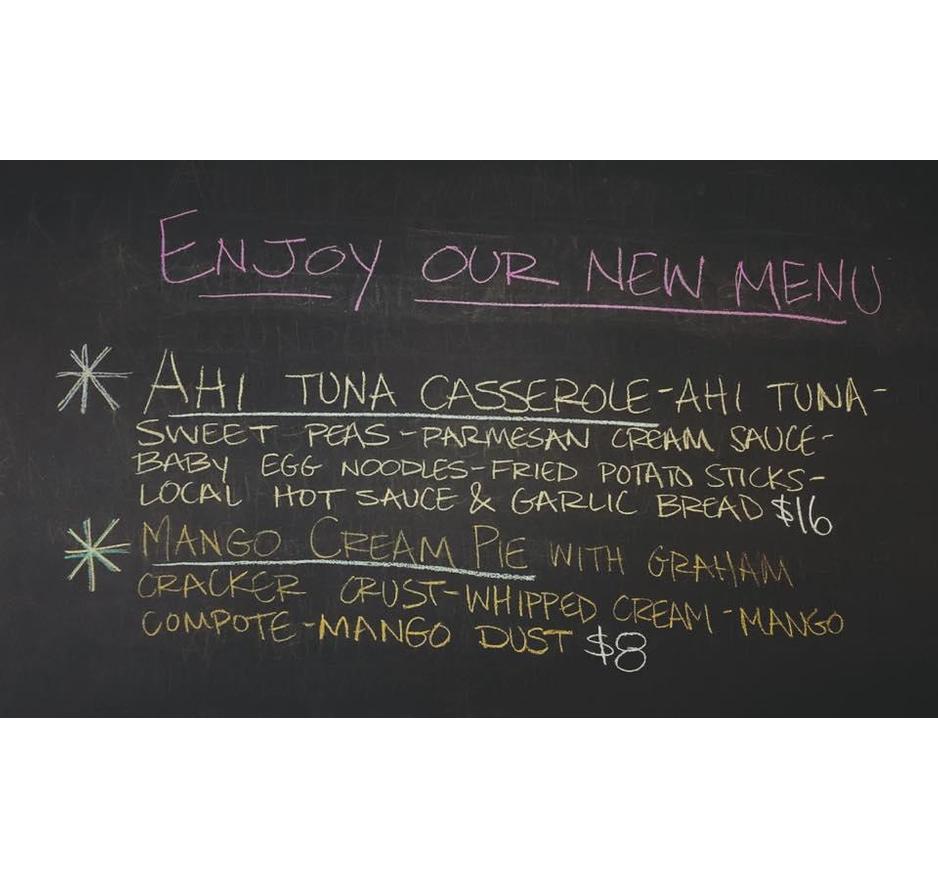 ENJOY OUR NEW MENU
AHI TUNA CASSEROLE-AHI TUNA-
SWEET PEAS-PARMESAN CREAM SAUCE-
BABY EGG NOODLES-FRIED POTATO STICKS-
LOCAL HOT SAUCE & GARLIC BREAD $16
MANGO CREAM PIE WITH GRAHAM
CRACKER CRUST-WHIPPED CREAM-MANGO
COMPOTE-MANGO DUST $8